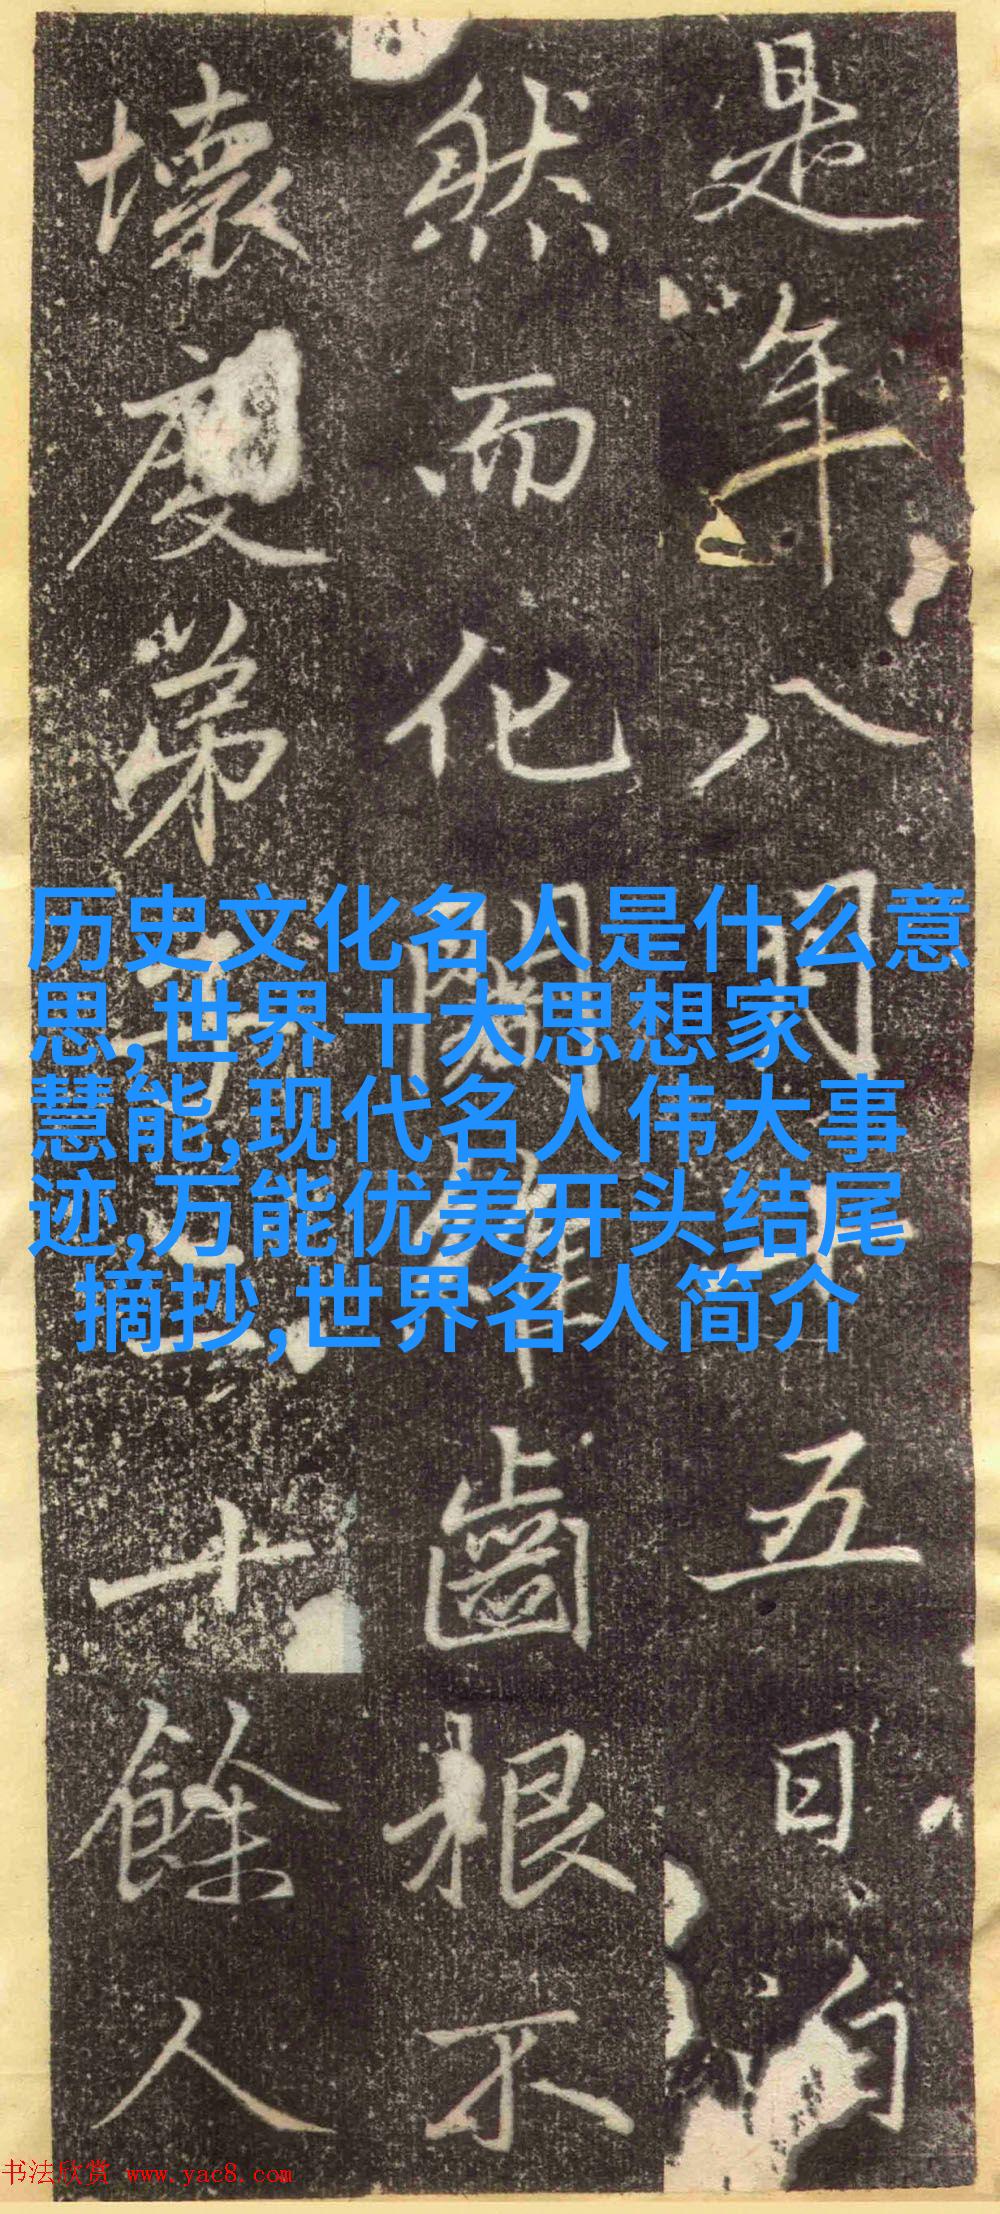 是年八月十五日
然而化闍維齒根不
壞度弟子三十餘人
历史文化名人是什么意
思,世界十大思想家
慧能,现代名人伟大事
迹,万能优美开头结尾
摘抄,世界名人简介
书法欣赏 www.yac8.com